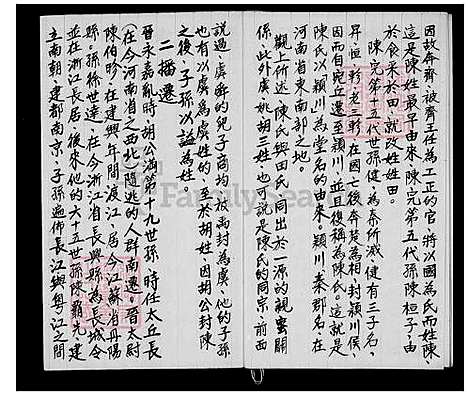 因故奔齊,被齊王任為工正的官,將以國為氏而姓陳,
這是陳姓最早由來,陳完第五代孫陳桓子,由
於食采於田,就改姓姓田。
陳完第十五代世孫健,為秦所滅,健有三子名,
昇,恒,軫,老三軫在國亡後奔楚為相,封潁川侯,
因而自宛丘遷至潁川,並且復稱為陳氏。這就是
陳氏以「潁川」為堂名的由來。潁川,秦郡名,在
今河南省東南部之地。
觀上所述,陳氏與田氏,同出於一源的親蜜關
係,此外虞,姚,胡三姓,也可說是陳氏的同宗,前面
說過,虞舜的兒子商均,於禹封為虞,他的子孫
也有以虞為虞姓的,至於胡姓,因胡公封陳
之後,子孫以謚為姓。
二播遷
晉永嘉亂時,胡公滿第十九世孫,時任太丘長
(在今河南省之西北)隨逃的人群南遷。晉太尉
陳伯眕在建興年間渡江,居今江蘇省丹陽
縣。孫條世達,在今浙江省長興縣為長城令
並在浙江長居,後來他的六十五世孫陳霸先,建
立南朝,建都南京,子孫遍佈長江與粵江之間
FamilySearch